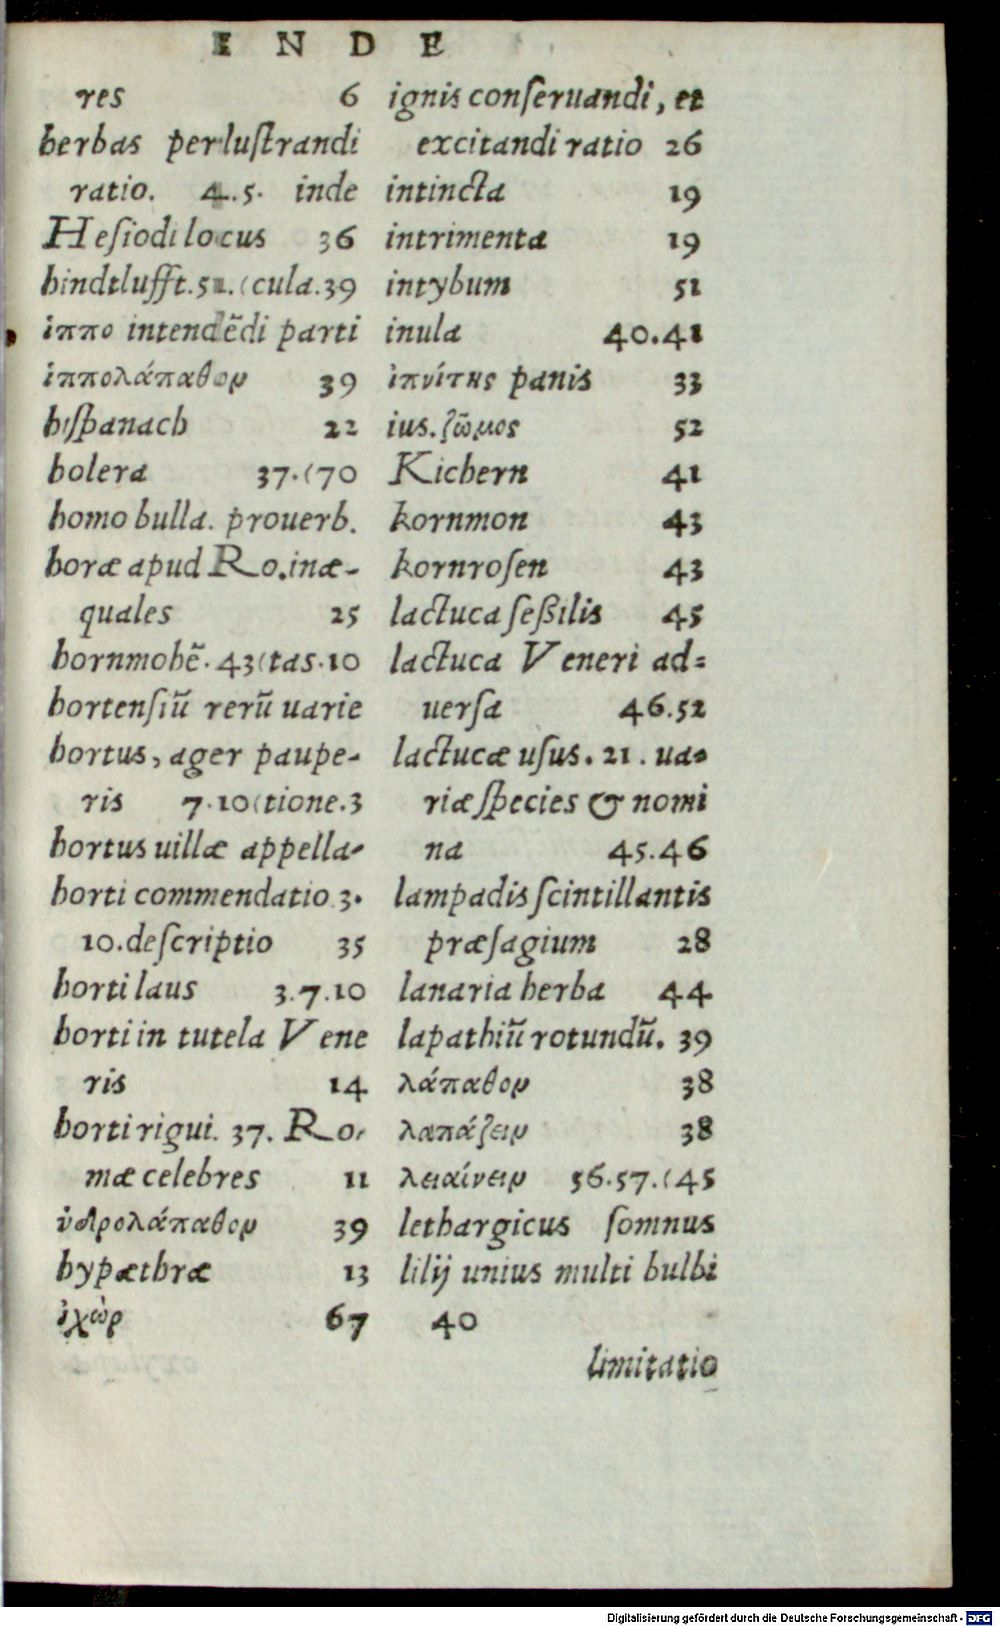 INDE
res 6
herbas perluſtrandi
ratio. 4.5. inde
Heſiodi locus 36
hindtlufft.51.(cula.39
ἱππο intendēdi parti
ἱππολάπαθον 39
hiſpanach 22
holera 37.(70
homo bulla. prouerb.
horæ apud Ro.inæ-
quales 25
hornmohē.43(tas.10
hortenſiū rerū uarie
hortus, ager paupe-
ris 7.10(tione.3
hortus uillæ appella-
horti commendatio 3.
10.deſcriptio 35
horti laus 3.7.10
horti in tutela Vene
ris 14
horti rigui. 37. Ro-
mæ celebres 11
ὑδρολάπαθον 39
hypæthræ 13
ἰχὼρ 67
ignis conſeruandi, et
excitandi ratio 26
intincta 19
intrimenta 19
intybum 51
inula 40.41
ἰπνίτης panis 33
ius. ζῶμος 52
Kichern 41
kornmon 43
kornroſen 43
lactuca ſeßilis 45
lactuca Veneri ad-
uerſa 46.52
lactucæ uſus. 21. ua-
riæ ſpecies & nomi
na 45.46
lampadis ſcintillantis
præſagium 28
lanaria herba 44
lapathiū rotundū. 39
λάπαθον 38
λαπάζειν 38
λειαίνειν 56.57.(45
lethargicus ſomnus
lilij unius multi bulbi
40
limitatio
Digitalisierung gefördert durch die Deutsche Forschungsgemeinschaft - DFG